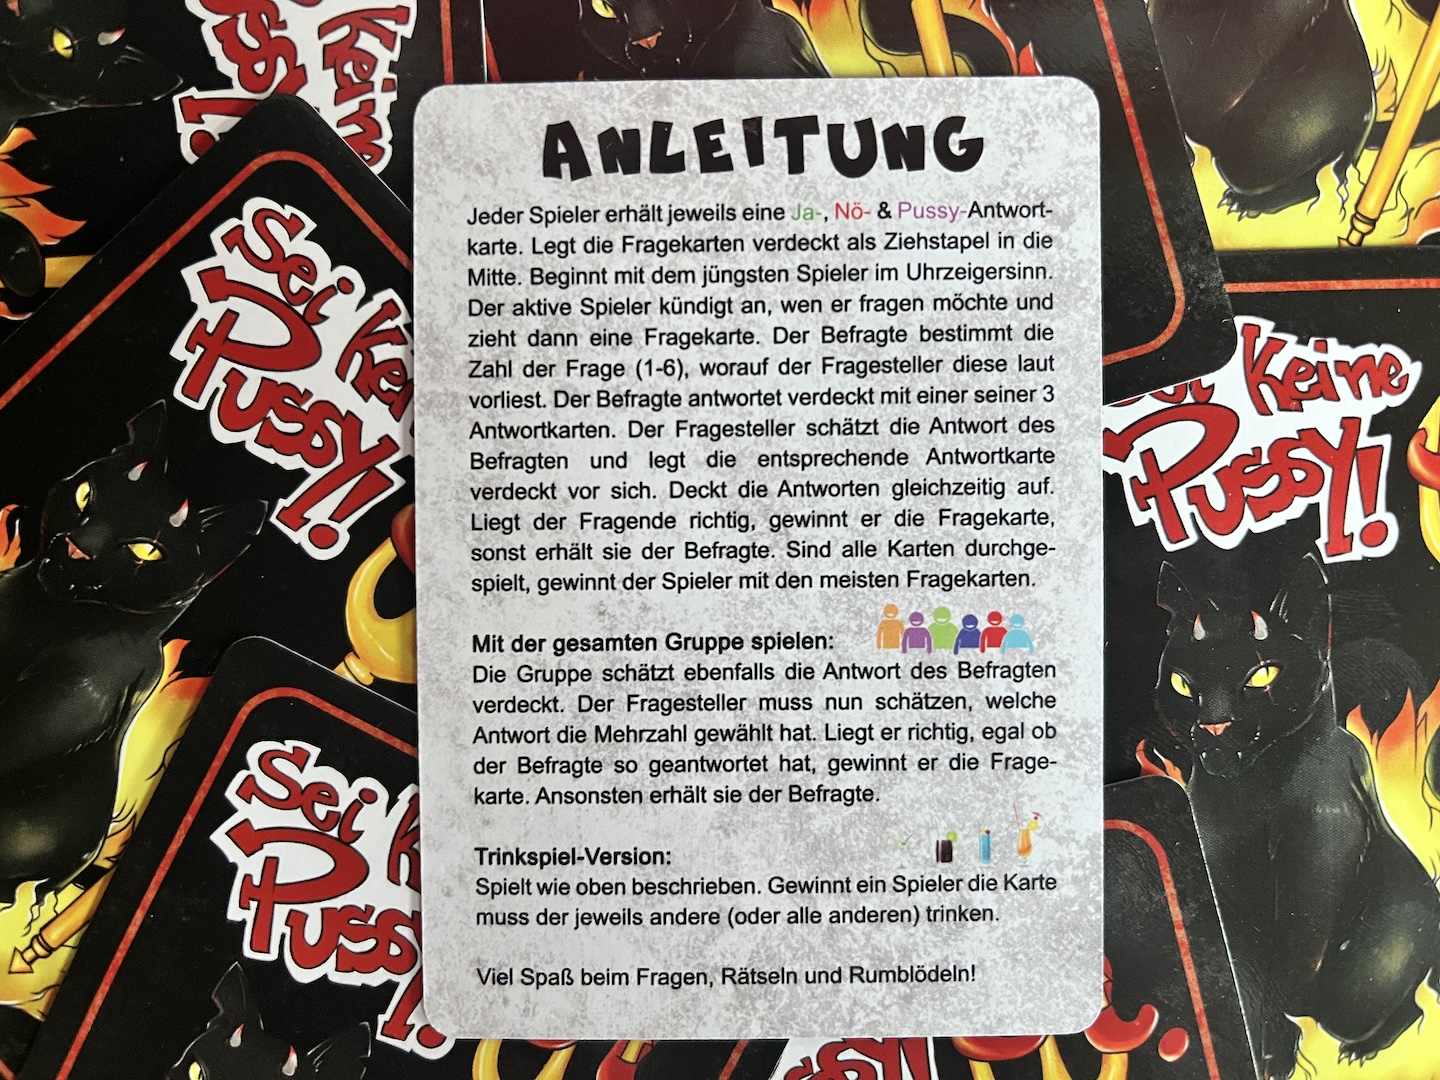 ANLEITUNG
Jeder Spieler erhält jeweils eine Ja-, Nö- & Pussy-Antwort-
karte. Legt die Fragekarten verdeckt als Ziehstapel in die
Mitte. Beginnt mit dem jüngsten Spieler im Uhrzeigersinn.
Der aktive Spieler kündigt an, wen er fragen möchte und
zieht dann eine Fragekarte. Der Befragte bestimmt die
Zahl der Frage (1-6), worauf der Fragesteller diese laut
vorliest. Der Befragte antwortet verdeckt mit einer seiner 3
Antwortkarten. Der Fragesteller schätzt die Antwort des
Befragten und legt die entsprechende Antwortkarte
verdeckt vor sich. Deckt die Antworten gleichzeitig auf.
Liegt der Fragende richtig, gewinnt er die Fragekarte,
sonst erhält sie der Befragte. Sind alle Karten durchge-
spielt, gewinnt der Spieler mit den meisten Fragekarten.
Mit der gesamten Gruppe spielen:
Die Gruppe schätzt ebenfalls die Antwort des Befragten
verdeckt. Der Fragesteller muss nun schätzen, welche
Antwort die Mehrzahl gewählt hat. Liegt er richtig, egal ob
der Befragte so geantwortet hat, gewinnt er die Frage-
karte. Ansonsten erhält sie der Befragte.
Trinkspiel-Version:
Spielt wie oben beschrieben. Gewinnt ein Spieler die Karte
muss der jeweils andere (oder alle anderen) trinken.
Viel Spaß beim Fragen, Rätseln und Rumblödeln!
Sei Ke
Pussy!
Sei K
Puss
Keine
Pussy!
Keine